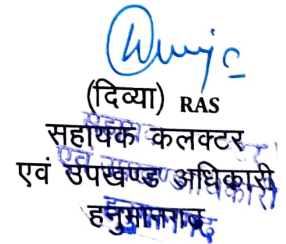 (दिव्या) RAS
सहायक कलक्टर
एवं उपखण्ड अधिकारी
हनुमानगढ़